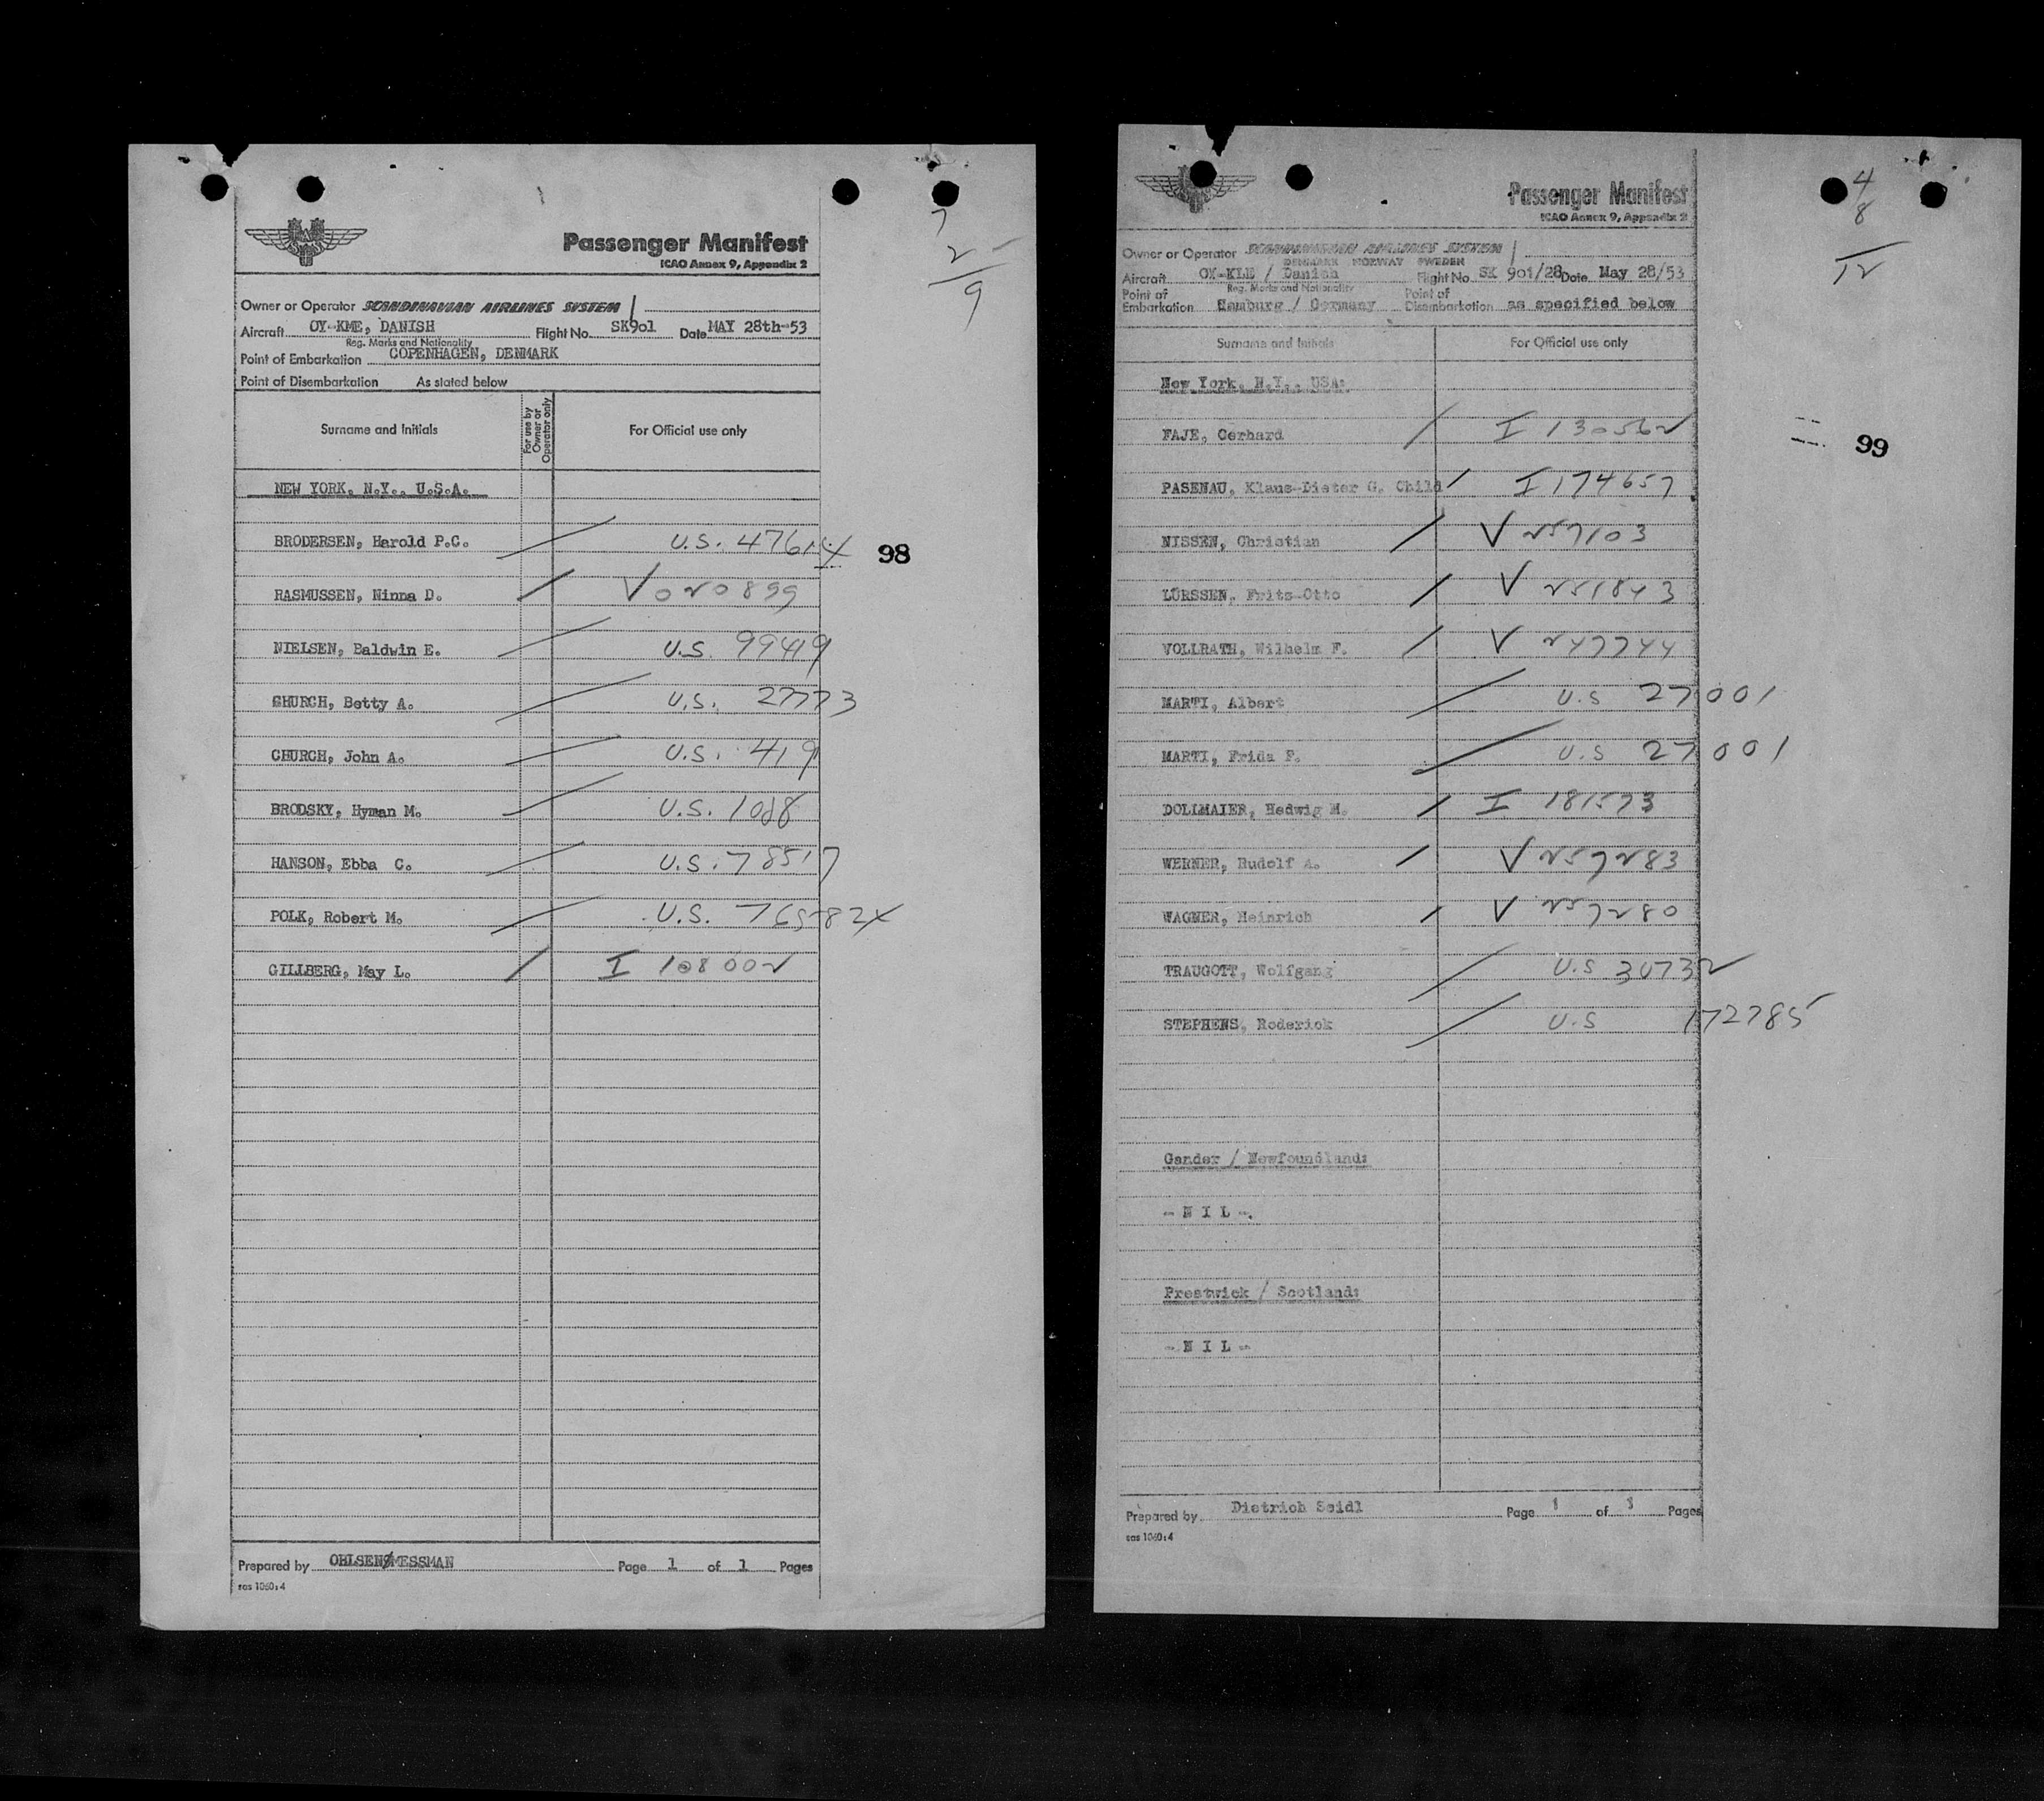 7
2
9
Passenger Manifest
ICAO Annex 9, Appendix 2
Owner or Operator SCANDINAVIAN AIRLINES SYSTEM
Aircraft OY-KME, DANISH Flight No. SK901 Date MAY 28th-53
Reg. Marks and Nationality
Point of Embarkation COPENHAGEN, DENMARK
Point of Disembarkation As stated below
Surname and Initials For use by Owner or Operator only For Official use only
NEW YORK. N.Y., U.S.A.
BRODERSEN, Harold P.C. U.S.
98
RASMUSSEN, Ninna D. V 020899
NIELSEN, Baldwin E. U.S. 99419
CHURCH, Betty A. U.S. 27773
CHURCH, John A. U.S. 419
BRODSKY, Hyman M. U.S.
HANSON, Ebba C. U.S. 78517
POLK, Robert M. U.S.
GILLBERG, May L. I 108002
Prepared by OHLSEN/MESSMAN Page 1 of 1 Pages
sas 1060:4
4
8
12
Passenger Manifest
ICAO Annex 9, Appendix 2
Owner or Operator SCANDINAVIAN AIRLINES SYSTEM
DENMARK NORWAY SWEDEN
Aircraft OY-KLE / Danish Flight No. SK 901/28 Date May 28/53
Reg. Marks and Nationality
Point of Embarkation Hamburg / Germany Point of Disembarkation as specified below
Surname and Initials For Official use only
New York, N.Y., USA:
FAJE, Gerhard I 130562
99
PASENAU, Klaus-Dieter G. Child I 174657
NISSEN, Christian V 257103
LÜRSSEN, Fritz-Otto V 251843
VOLLRATH, Wilhelm F. V 247744
MARTI, Albert U.S 27001
MARTI, Frida F. U.S 27001
DOLLMAIER, Hedwig M. I 181573
WERNER, Rudolf A. V 257283
WAGNER, Heinrich V 257280
TRAUGOTT, Wolfgang U.S 30732
STEPHENS, Roderick U.S 172785
Gander / Newfoundland:
- N I L -.
Prestwick / Scotland:
- N I L -
Prepared by Dietrich Seidl Page 1 of 1 Pages
sas 1060:4